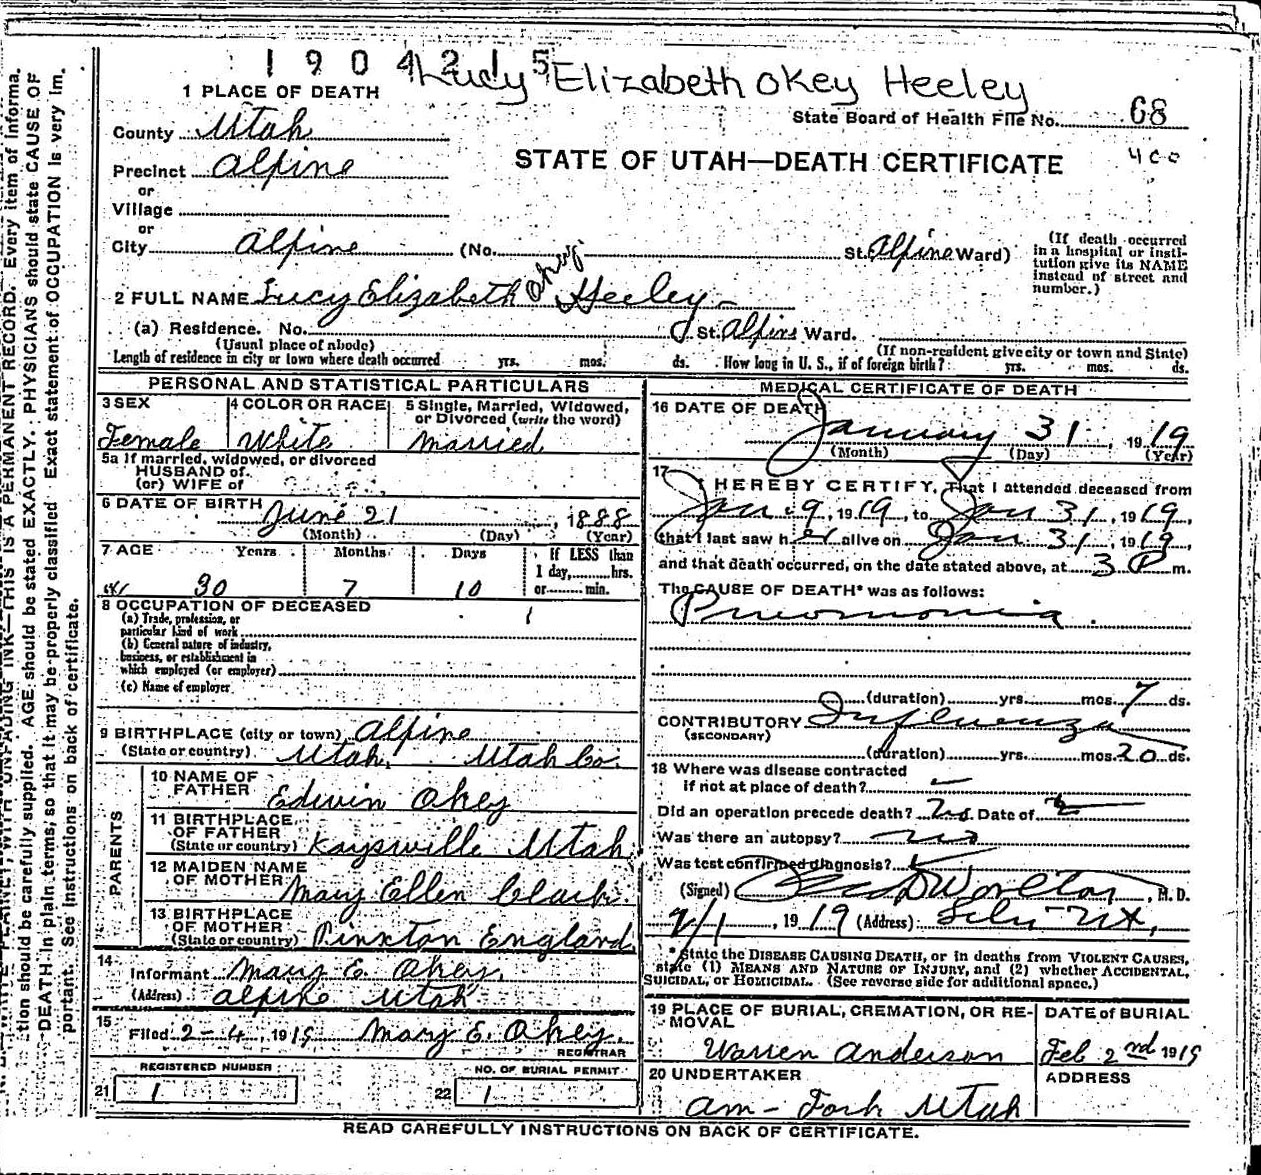 1904215
Lucy Elizabeth Okey Heeley
1 PLACE OF DEATH
State Board of Health File No. 68
County Utah
STATE OF UTAH—DEATH CERTIFICATE
400
Precinct Alpine
or
Village
or
City Alpine (No. St. Alpine Ward)
(If death occurred in a hospital or institution give its NAME instead of street and number.)
2 FULL NAME Lucy Elizabeth Okey Heeley
(a) Residence. No. St. Alpine Ward.
(Usual place of abode)
(If non-resident give city or town and State)
Length of residence in city or town where death occurred yrs. mos. ds. How long in U. S., if of foreign birth? yrs. mos. ds.
PERSONAL AND STATISTICAL PARTICULARS
3 SEX
Female
4 COLOR OR RACE
White
5 Single, Married, Widowed, or Divorced (write the word)
Married
5a If married, widowed, or divorced
HUSBAND of
(or) WIFE of
6 DATE OF BIRTH June 21, 1888
(Month) (Day) (Year)
7 AGE Years Months Days If LESS than
1 day, hrs.
30 7 10 or min.
8 OCCUPATION OF DECEASED
(a) Trade, profession, or
particular kind of work
(b) General nature of industry,
business, or establishment in
which employed (or employer)
(c) Name of employer
9 BIRTHPLACE (city or town) Alpine
(State or country) Utah. Utah Co.
PARENTS
10 NAME OF FATHER Edwin Okey
11 BIRTHPLACE OF FATHER
(State or country) Kaysville Utah
12 MAIDEN NAME OF MOTHER Mary Ellen Clark.
13 BIRTHPLACE OF MOTHER
(State or country) Pinxton England
14
Informant Mary E. Okey.
(Address) Alpine Utah
15
Filed 2-4, 1919 Mary E. Okey.
REGISTRAR
REGISTERED NUMBER
21 1
NO. OF BURIAL PERMIT
22 1
MEDICAL CERTIFICATE OF DEATH
16 DATE OF DEATH
January 31, 1919
(Month) (Day) (Year)
17
I HEREBY CERTIFY, That I attended deceased from
Jan. 9, 1919, to Jan 31, 1919,
that I last saw her alive on Jan 31, 1919,
and that death occurred, on the date stated above, at 3 P m.
The CAUSE OF DEATH* was as follows:
Pneomonia.
(duration) yrs. mos. 7 ds.
CONTRIBUTORY Influenza
(SECONDARY)
(duration) yrs. mos. 20 ds.
18 Where was disease contracted
if not at place of death?
Did an operation precede death? Date of
Was there an autopsy? no
Was test confirmed diagnosis?
(Signed) M. D.
2/1, 1919 (Address)
*State the DISEASE CAUSING DEATH, or in deaths from VIOLENT CAUSES,
state (1) MEANS AND NATURE OF INJURY, and (2) whether ACCIDENTAL,
SUICIDAL, or HOMICIDAL. (See reverse side for additional space.)
19 PLACE OF BURIAL, CREMATION, OR REMOVAL
DATE of BURIAL
Feb 2nd 1919
Warren Anderson
20 UNDERTAKER
ADDRESS
Am- Fork Utah
READ CAREFULLY INSTRUCTIONS ON BACK OF CERTIFICATE.
THIS IS A PERMANENT RECORD. Every item of informa-
tion should be carefully supplied. AGE should be stated EXACTLY. PHYSICIANS should state CAUSE OF
DEATH in plain terms, so that it may be properly classified. Exact statement of OCCUPATION is very im-
portant. See instructions on back of certificate.